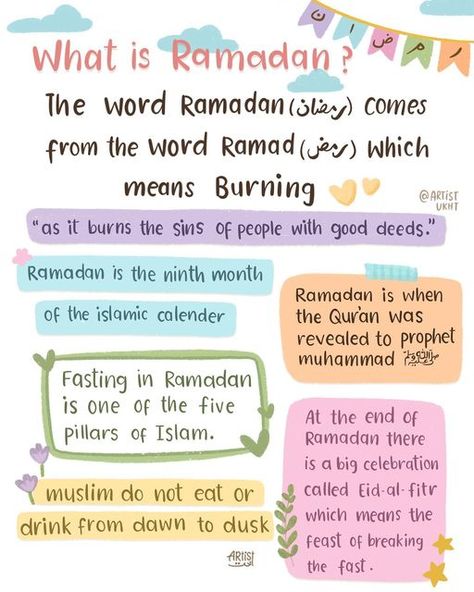 رمضان
What is Ramadan?
The word Ramadan (رمضان) comes
from the word Ramad (رمض) which
means Burning
@ARTIST
UKHT
"as it burns the sins of people with good deeds."
Ramadan is the ninth month
of the islamic calender
Ramadan is when
the Qur'an was
revealed to prophet
muhammad ﷺ
Fasting in Ramadan
is one of the five
pillars of Islam.
At the end of
Ramadan there
is a big celebration
called Eid-al-fitr
which means the
feast of breaking
the fast.
muslim do not eat or
drink from dawn to dusk
ARTIST